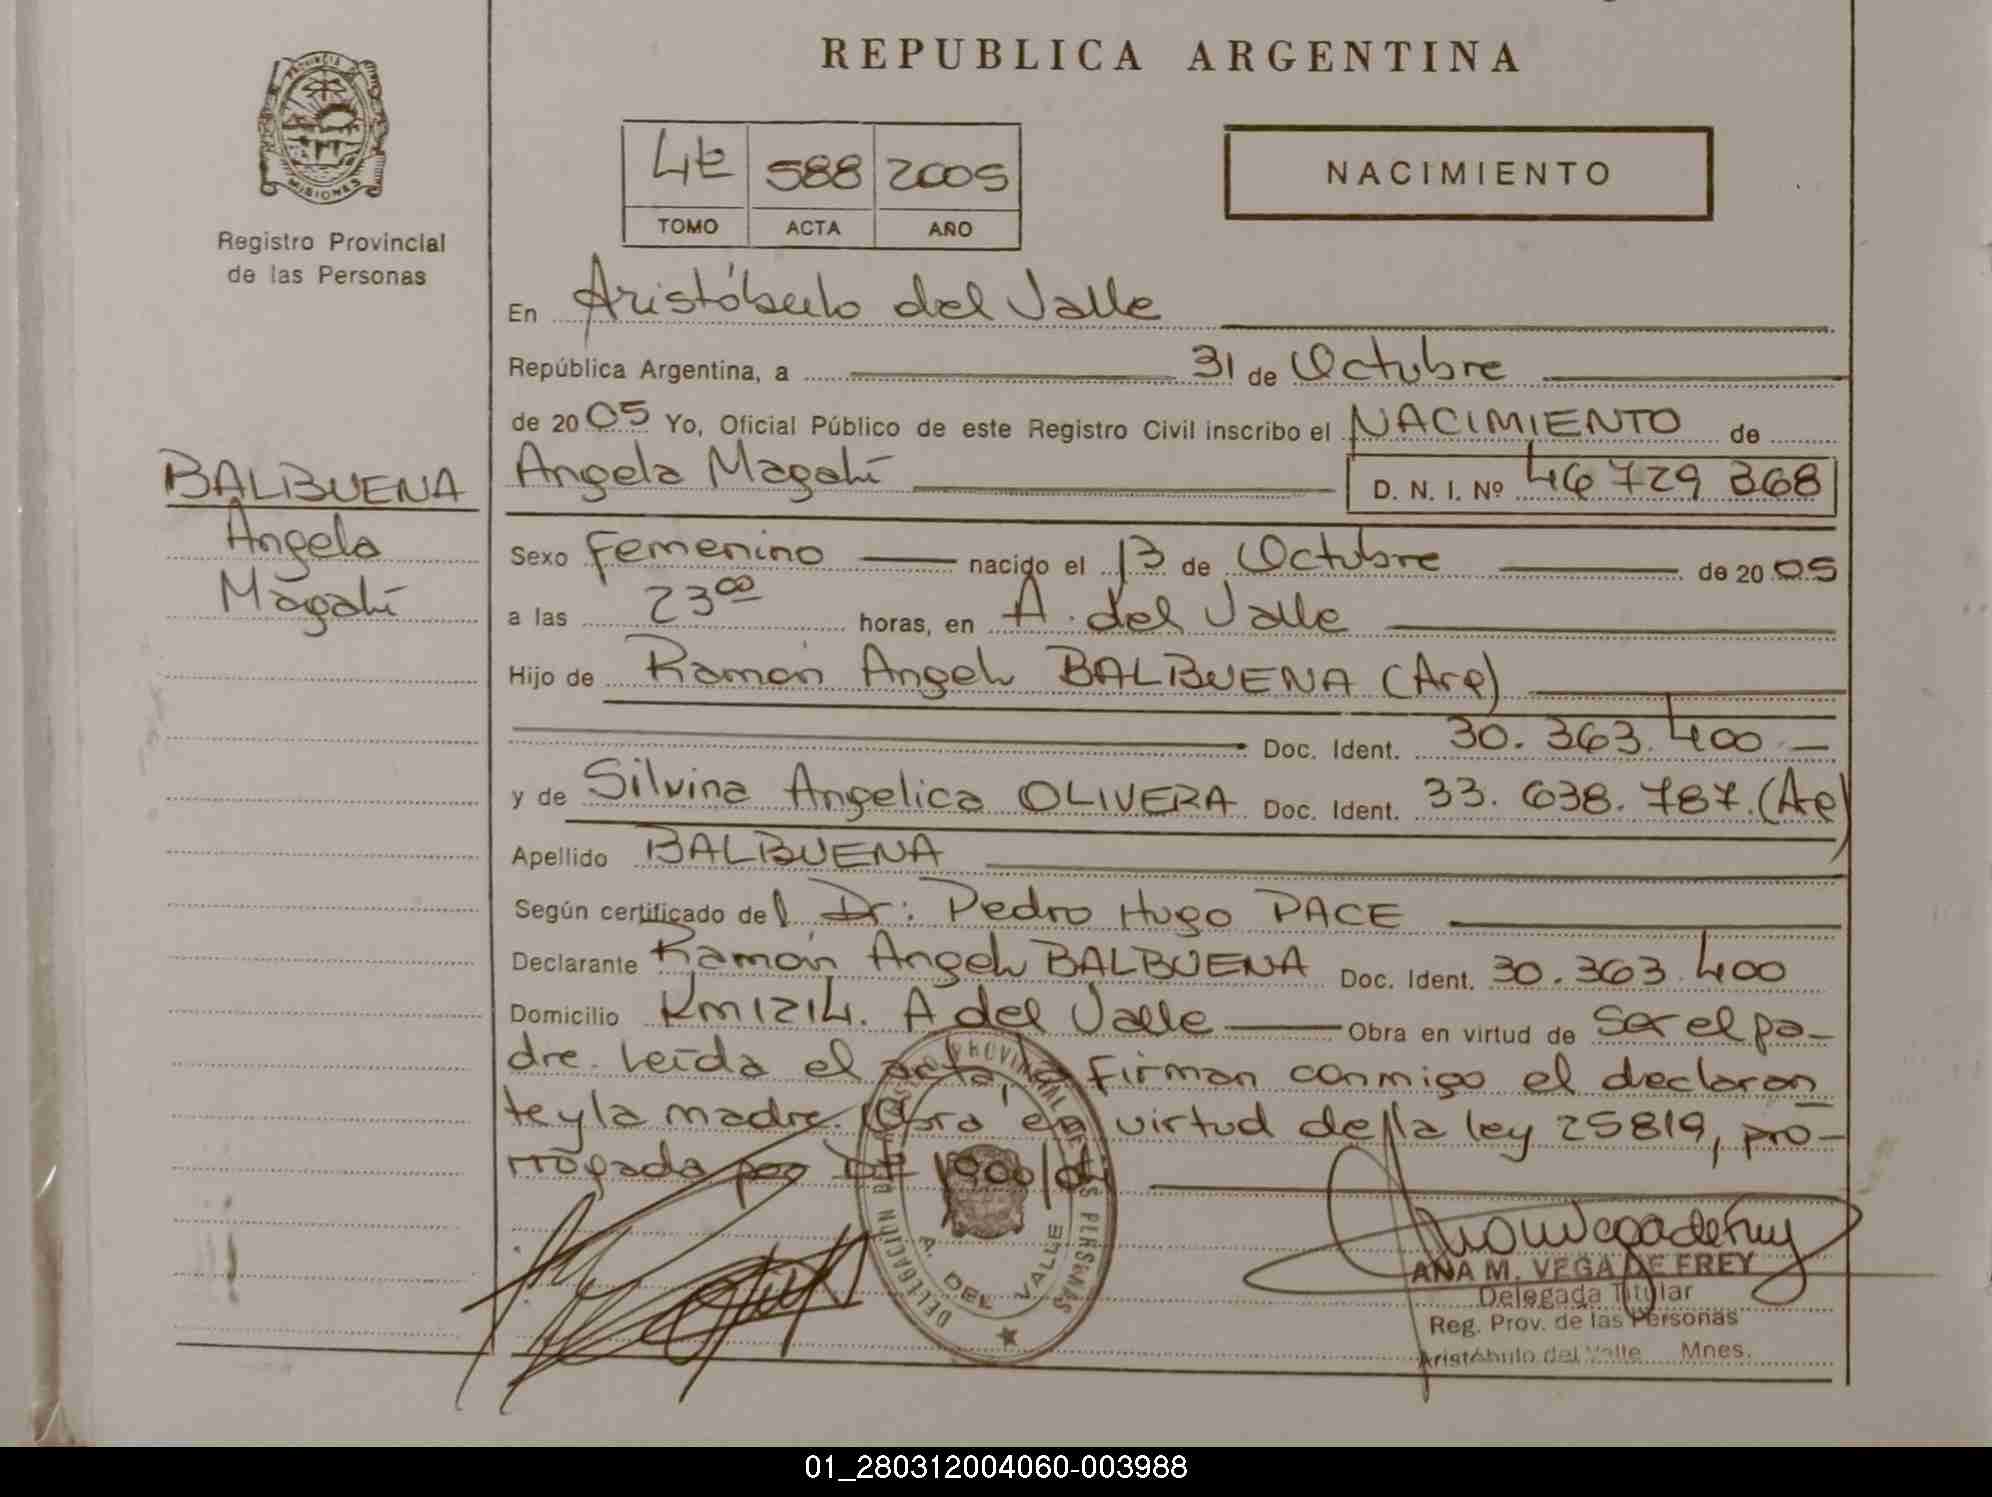 REPUBLICA ARGENTINA
PROVINCIA DE
MISIONES
Registro Provincial
de las Personas
4t 588 2005
TOMO ACTA AÑO
NACIMIENTO
En Aristóbulo del Valle
República Argentina, a 31 de Octubre
de 2005 Yo, Oficial Público de este Registro Civil inscribo el NACIMIENTO de
Angela Magalí D. N. I. Nº 46 729 368
BALBUENA
Angela
Magalí
Sexo Femenino nacido el 13 de Octubre de 2005
a las 23 00 horas, en A. del Valle
Hijo de Ramón Angel BALBUENA (Arg)
Doc. Ident. 30.363.400
y de Silvina Angelica OLIVERA Doc. Ident. 33.638.787.(Ar)
Apellido BALBUENA
Según certificado del Dr: Pedro Hugo PACE
Declarante Ramón Angel BALBUENA Doc. Ident. 30.363.400
Domicilio Km 1214. A del Valle Obra en virtud de Ser el pa-
dre. Leída el acta, la firman conmigo el declaran
te y la madre. Obra en virtud de la ley 25819, pro-
rrogada por 1900/04
DELEGACION PROVINCIAL DE LAS PERSONAS
A. DEL VALLE
ANA M. VEGA DE FREY
Delegada Titular
Reg. Prov. de las Personas
Aristóbulo del Valle Mnes.
01_280312004060-003988